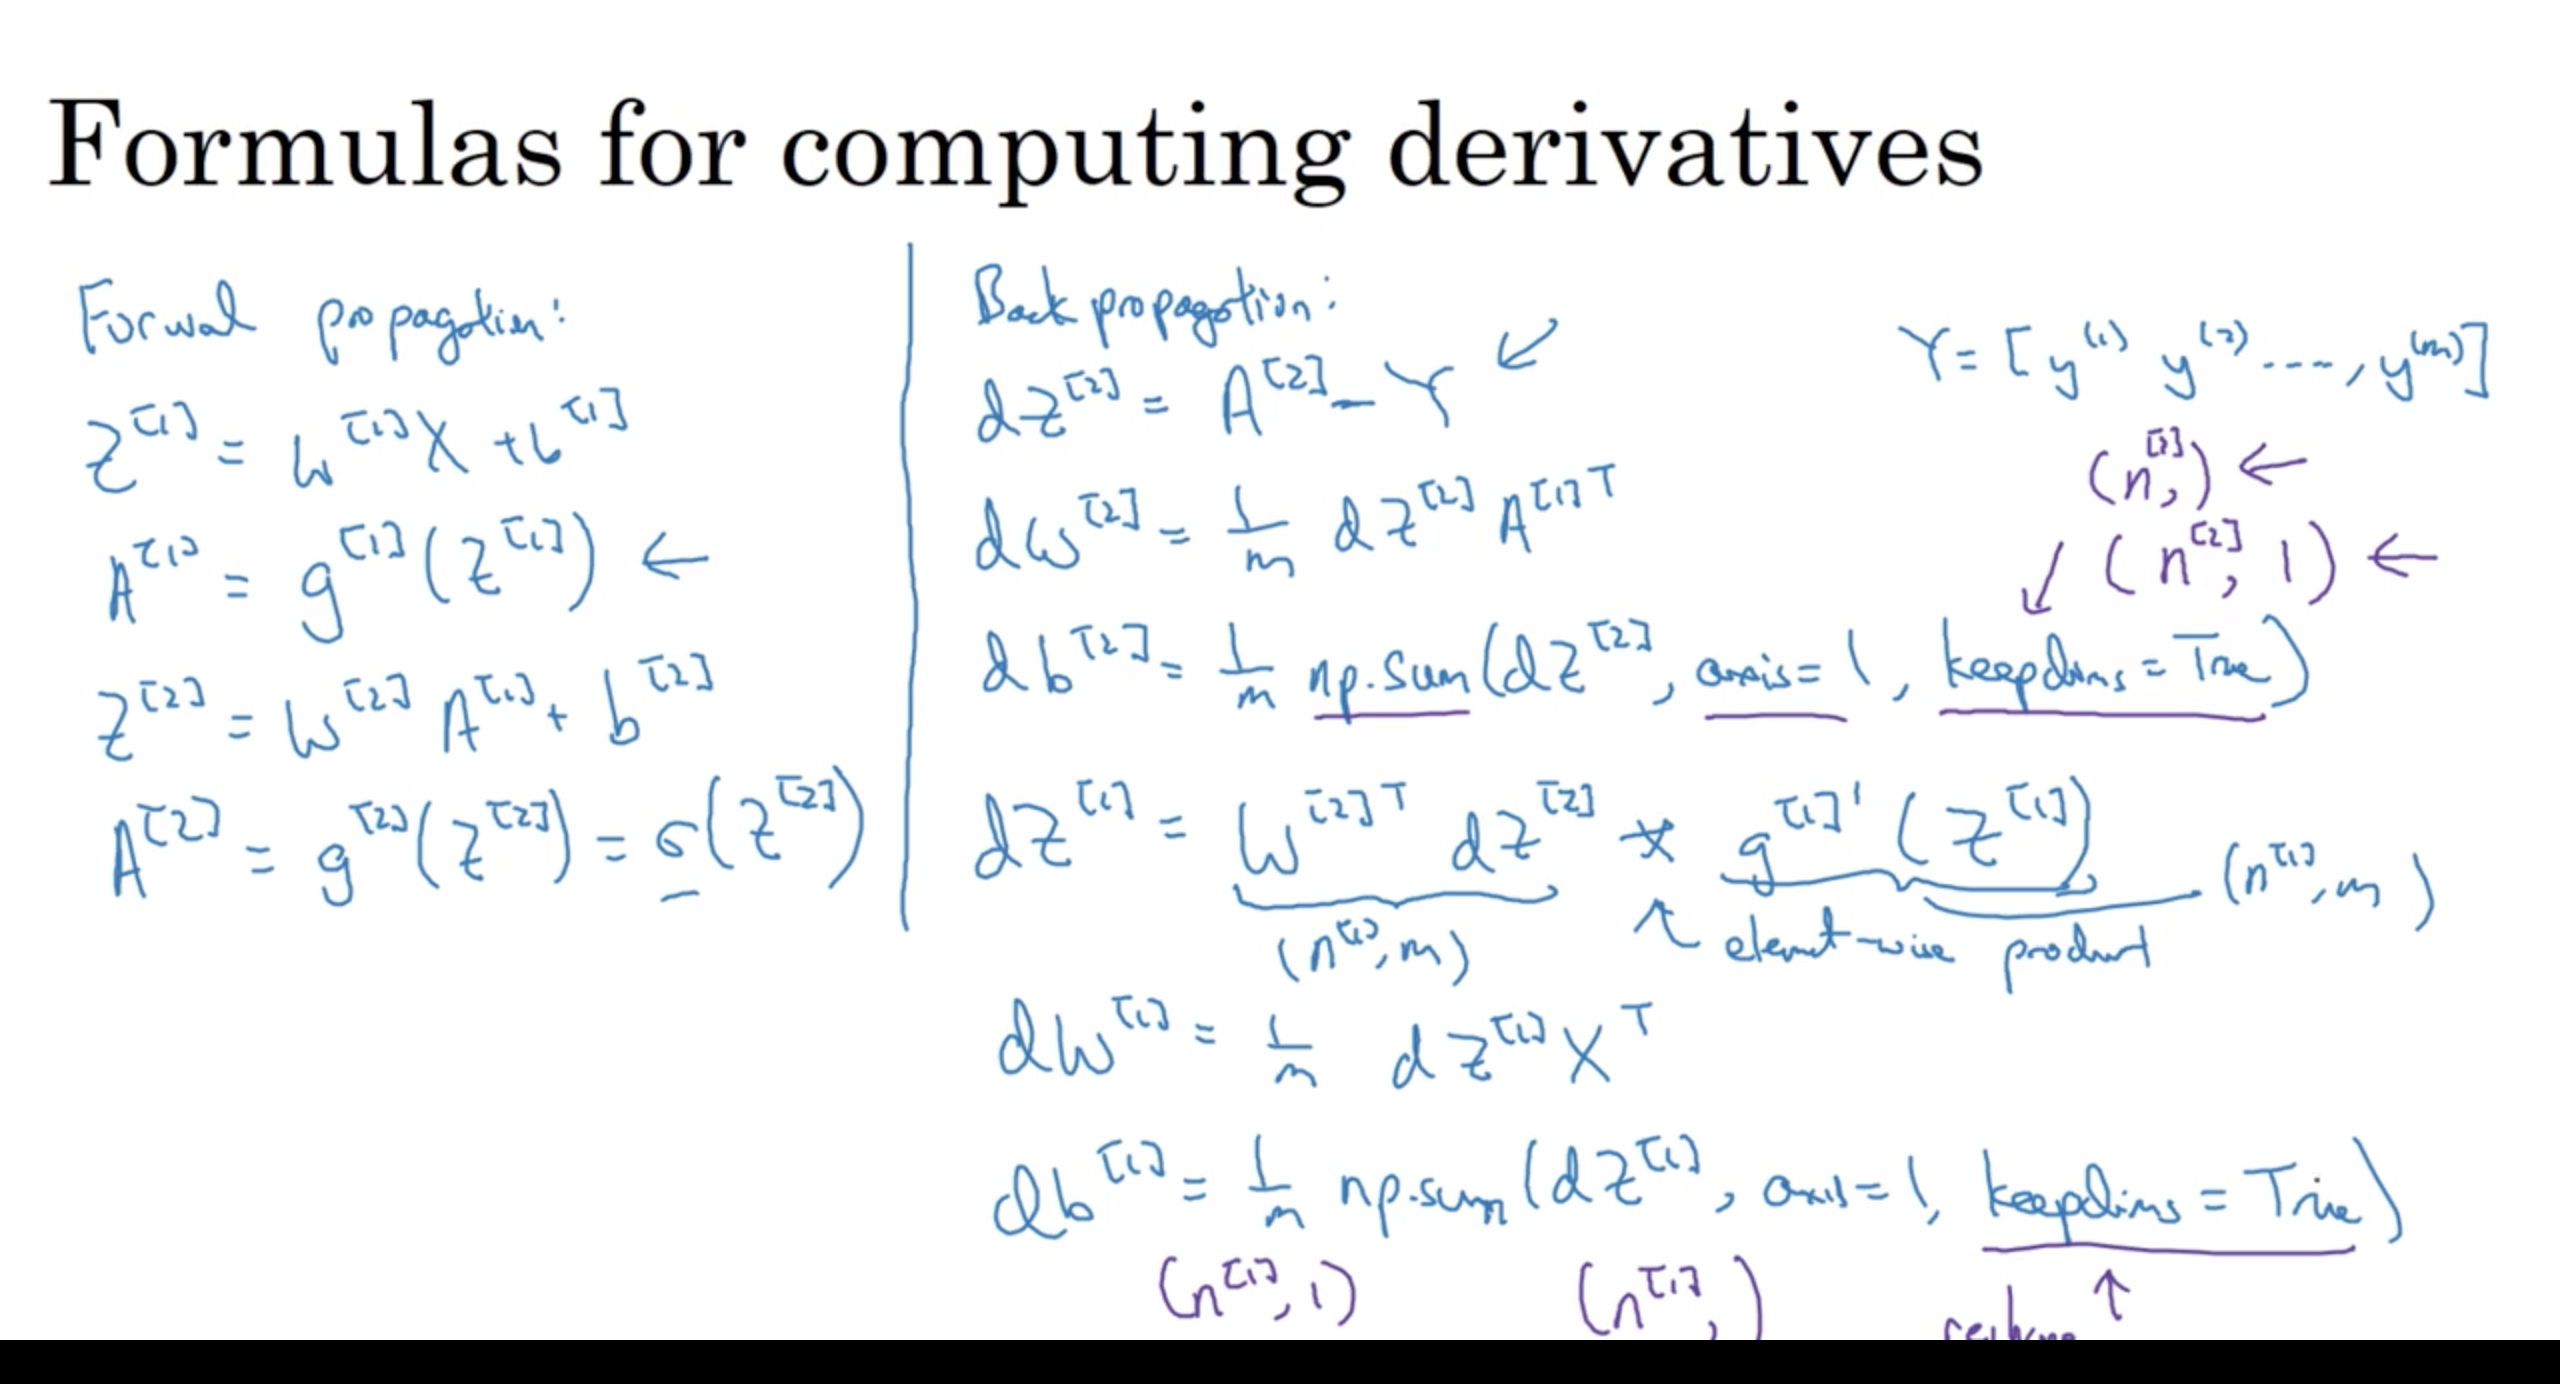 Formulas for computing derivatives
Forwad propagation:
Z^[1] = W^[1]X + b^[1]
A^[1] = g^[1](Z^[1]) ←
Z^[2] = W^[2] A^[1] + b^[2]
A^[2] = g^[2](Z^[2]) = σ(Z^[2])
Back propagation:
dZ^[2] = A^[2] - Y ↙
Y = [y^(1) y^(2) ...., y^(m)]
dW^[2] = 1/m dZ^[2] A^[1]T
(n^[2],) ←
↙ (n^[2], 1) ←
db^[2] = 1/m np.sum(dZ^[2], axis=1, keepdims=True)
dZ^[1] = W^[2]T dZ^[2] * g^[1]'(Z^[1])
(n^[1], m) ↖ element-wise product (n^[1], m)
dW^[1] = 1/m dZ^[1] X^T
db^[1] = 1/m np.sum(dZ^[1], axis=1, keepdims=True)
(n^[1], 1) (n^[1],) ↑